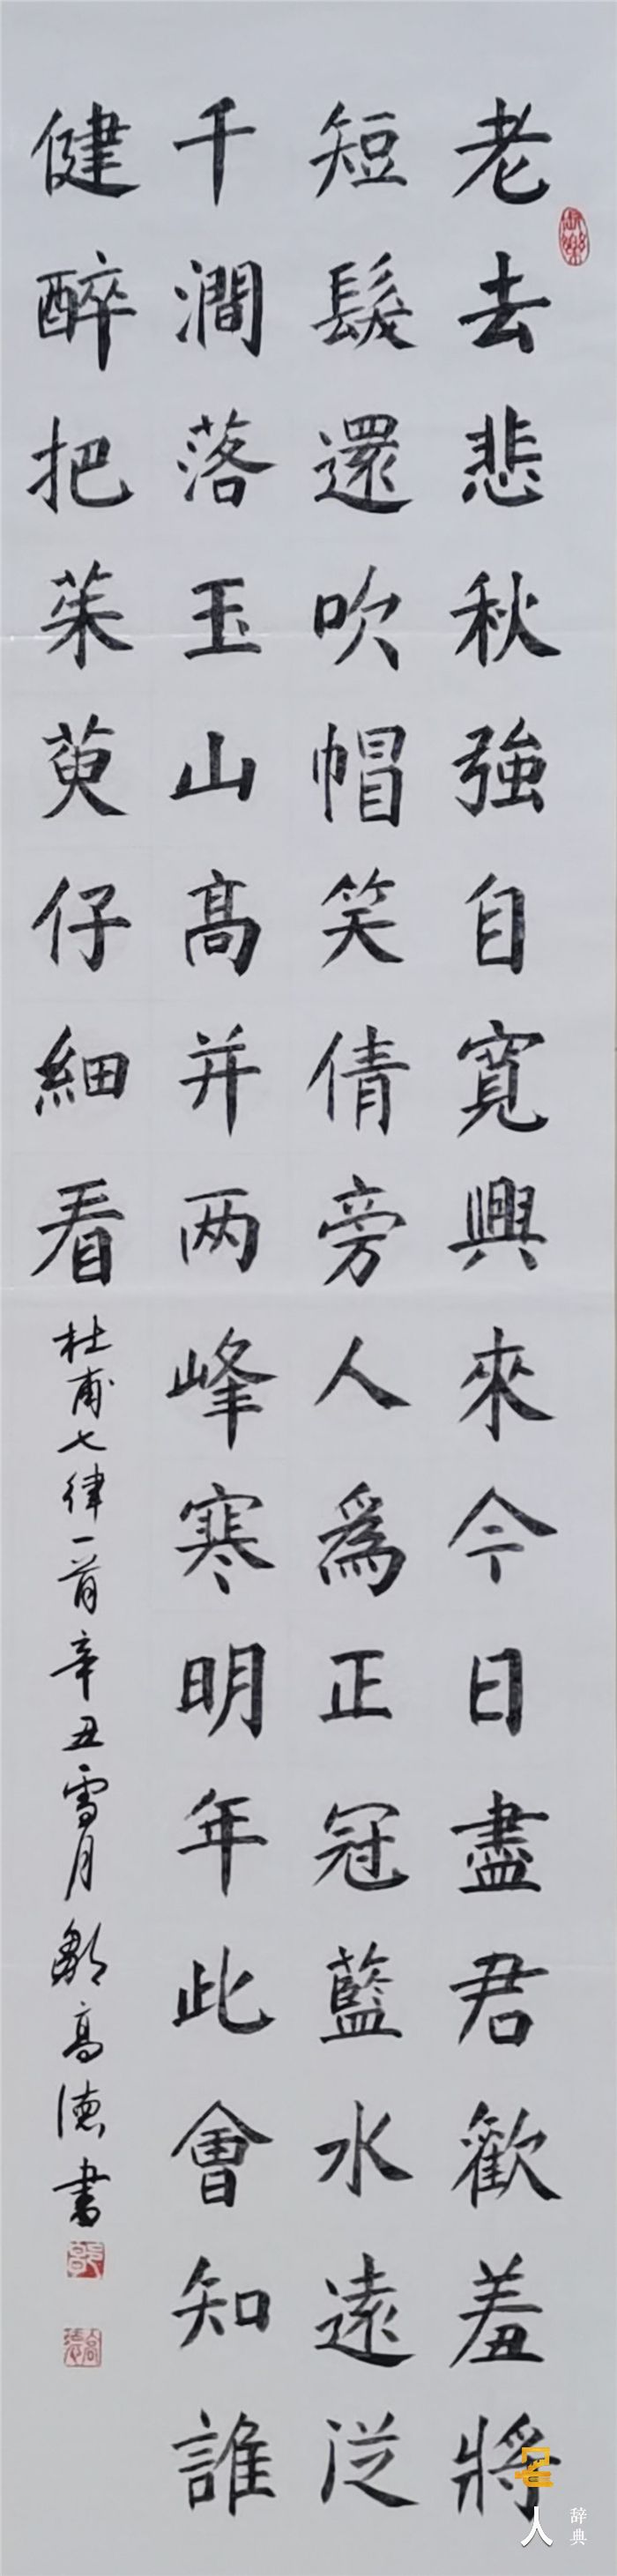 老去悲秋強自寬興來今日盡君歡羞將
短髮還吹帽笑倩旁人為正冠藍水遠從
千澗落玉山高并两峰寒明年此會知誰
健醉把茱萸仔細看
杜甫七律一首辛丑雪月鄒高德書
名人
辞典